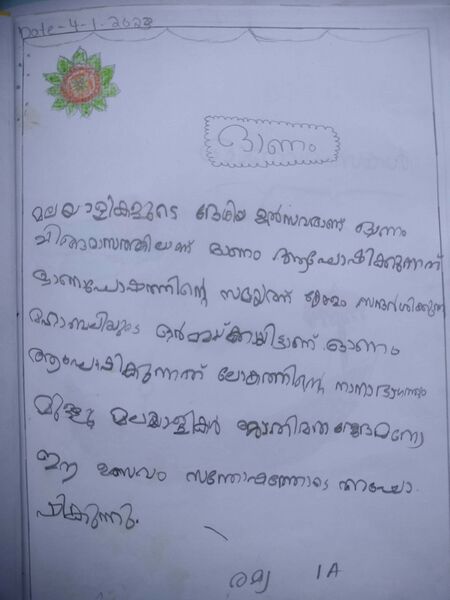 Date-4-1.2023
ഓണം
മലയാളികളുടെ ദേശീയ ഉൽസവമാണ് ഓണം
ചിങ്ങമാസത്തിലാണ് ഓണം ആഘോഷിക്കുന്നത്
ഓണഘോഷത്തിന്റെ സമയത്ത് എല്ലാം സന്ദർശിക്കുന്ന
മഹാബലിയുടെ ഓർമ്മയ്ക്കായിട്ടാണ് ഓണം
ആഘോഷിക്കുന്നത് ലോകത്തിന്റെ നാനാഭാഗത്തും
മുള്ളു മലയാളികൾ ജാതിമതഭേദമന്യേ
ഈ ഉത്സവം സന്തോഷത്തോടെ ആഘോ
ഷിക്കുന്നു.
രമ്യ 1A